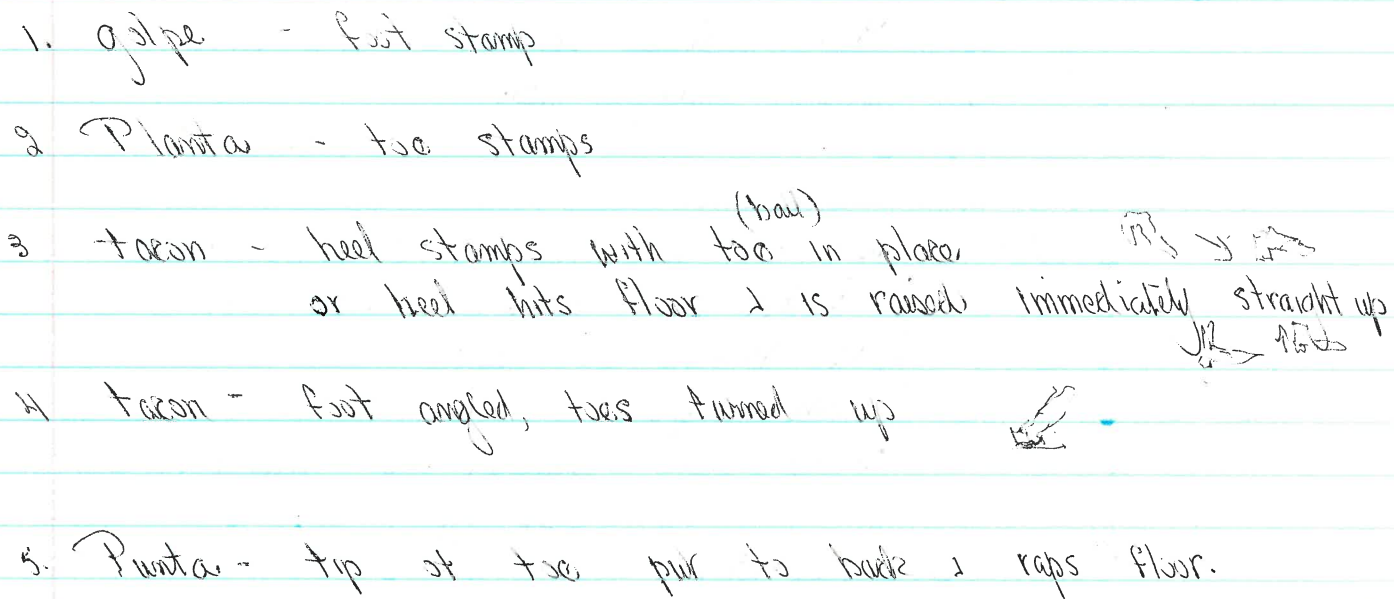 1. golpe - foot stamp
2 Planta - toe stamps
(ball)
3 tacon - heel stamps with toe in place
or heel hits floor & is raised immediately straight up
4 tacon - foot angled, toes turned up
5. Punta - tip of toe put to back & raps floor.